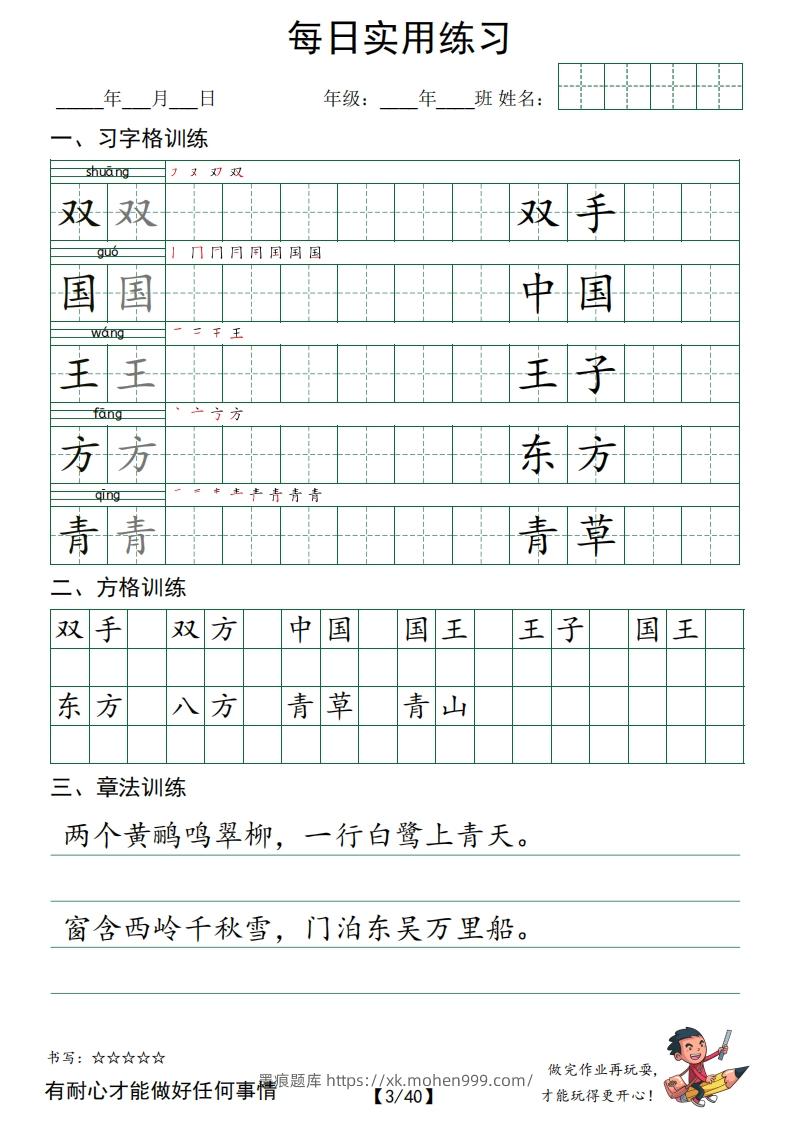 每日实用练习
_____年___月___日 年级：____年____班 姓名：
一、习字格训练
shuāng
双 双 双 手
guó
国 国 中 国
wáng
王 王 王 子
fāng
方 方 东 方
qīng
青 青 青 草
二、方格训练
双手 双方 中国 国王 王子 国王
东方 八方 青草 青山
三、章法训练
两个黄鹂鸣翠柳，一行白鹭上青天。
窗含西岭千秋雪，门泊东吴万里船。
书写：☆☆☆☆☆
做完作业再玩耍，
有耐心才能做好任何事情
墨痕题库 https://xk.mohen999.com/
【3/40】
才能玩得更开心！